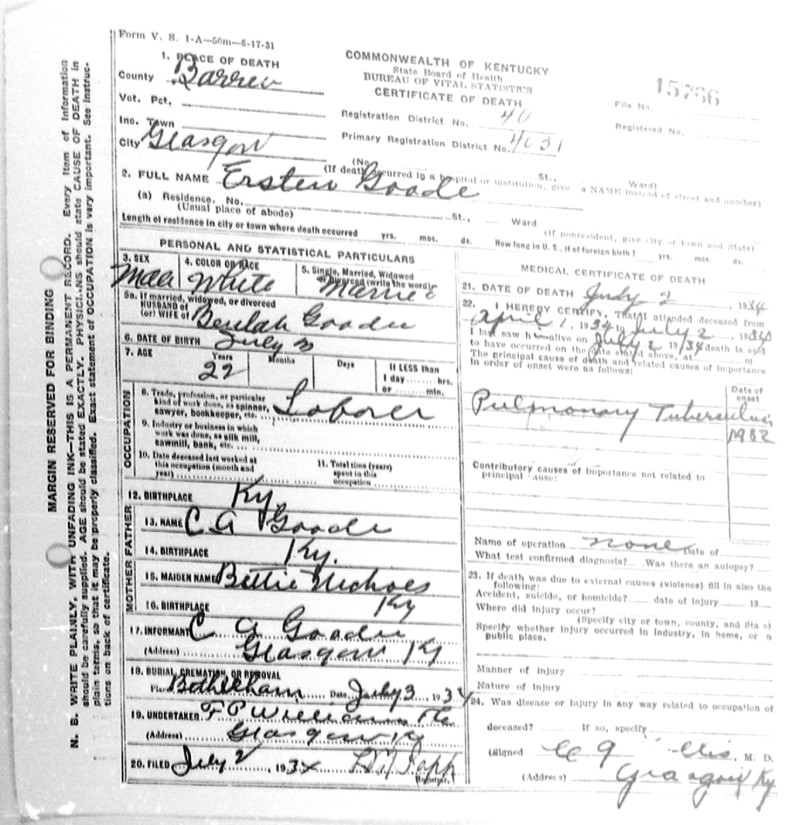 Form V. S. 1-A—50m—6-17-31
1. PLACE OF DEATH
County Barren
Vot. Pct.
Inc. Town
City Glasgow
COMMONWEALTH OF KENTUCKY
State Board of Health
BUREAU OF VITAL STATISTICS
CERTIFICATE OF DEATH
Registration District No. 40
Primary Registration District No. 4031
File No. 15766
Registered No.
(No. St., Ward)
(If death occurred in a hospital or institution, give a NAME instead of street and number)
2. FULL NAME Ersten Goode
(a) Residence, No. St., Ward
(Usual place of abode) (If nonresident, give city or town and State)
Length of residence in city or town where death occurred yrs. mos. ds. How long in U. S., if of foreign birth? yrs. mos. ds.
PERSONAL AND STATISTICAL PARTICULARS
3. SEX 4. COLOR OR RACE 5. Single, Married, Widowed
or Divorced (write the word)
Male White Married
5a. If married, widowed, or divorced
HUSBAND of
(or) WIFE of Beulah Goode
6. DATE OF BIRTH July
7. AGE Years Months Days If LESS than
22 1 day hrs.
or min.
OCCUPATION
8. Trade, profession, or particular
kind of work done, as spinner,
sawyer, bookkeeper, etc. Laborer
9. Industry or business in which
work was done, as silk mill,
sawmill, bank, etc.
10. Date deceased last worked at
this occupation (month and
year)
11. Total time (years)
spent in this
occupation
12. BIRTHPLACE Ky
FATHER
13. NAME C A Goode
14. BIRTHPLACE Ky.
MOTHER
15. MAIDEN NAME Bettie Nichols
16. BIRTHPLACE Ky
17. INFORMANT C A Goode
(Address) Glasgow Ky
18. BURIAL, CREMATION, OR REMOVAL
Place Bethelham Date July 3 1934
19. UNDERTAKER F P Williams
(Address) Glasgow Ky
20. FILED July 2 1934
Registrar.
MEDICAL CERTIFICATE OF DEATH
21. DATE OF DEATH July 2 1934
22. I HEREBY CERTIFY, That I attended deceased from
April 1, 1934, to July 2 1934
I last saw him alive on July 2 1934 death is said
to have occurred on the date stated above, at m.
The principal cause of death and related causes of importance
in order of onset were as follows:
Date of
onset
Pulmonary Tuberculosis
1932
Contributory causes of importance not related to
principal cause:
Name of operation none Date of
What test confirmed diagnosis? Was there an autopsy?
23. If death was due to external causes (violence) fill in also the
following:
Accident, suicide, or homicide? date of injury 19
Where did injury occur?
(Specify city or town, county, and State)
Specify whether injury occurred in industry, in home, or a
public place.
Manner of injury
Nature of injury
24. Was disease or injury in any way related to occupation of
deceased? If so, specify
(Signed , M. D.
(Address) Glasgow Ky
MARGIN RESERVED FOR BINDING
N. B. WRITE PLAINLY, WITH UNFADING INK—THIS IS A PERMANENT RECORD. Every item of information
should be carefully supplied. AGE should be stated EXACTLY. PHYSICIANS should state CAUSE OF DEATH in
plain terms, so that it may be properly classified. Exact statement of OCCUPATION is very important. See instruc-
tions on back of certificate.